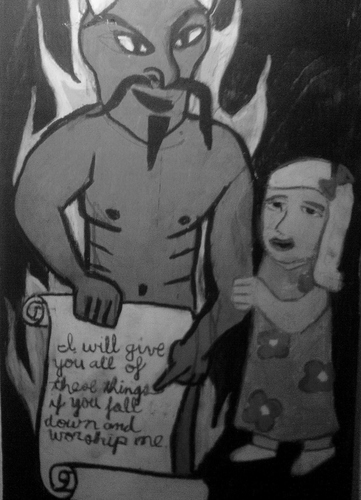 I will give
you all of
these things
if you fall
down and
worship me